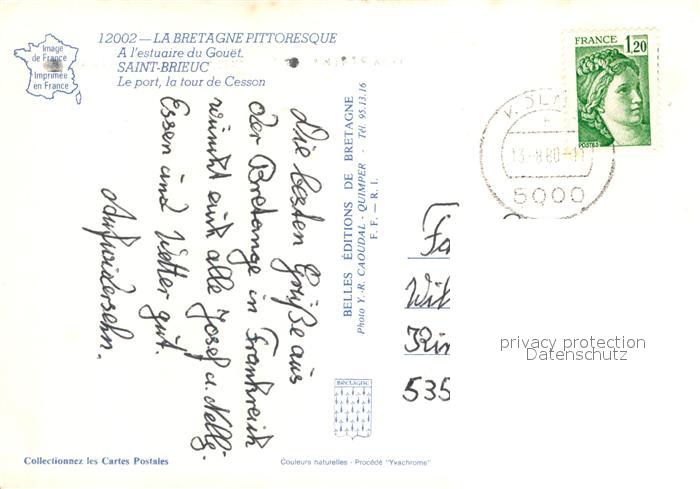 12002 — LA BRETAGNE PITTORESQUE
A l'estuaire du Gouët.
SAINT-BRIEUC
Le port, la tour de Cesson
Image
de France
Imprimée
en France
Die besten Grüße aus
der Bretange in Frankreich
wünscht euch alle Josef u. Nelli.
Essen und Wetter gut.
Aufwidersehn.
BELLES ÉDITIONS DE BRETAGNE
Photo Y.-R. CAOUDAL - QUIMPER - Tél. 95.13.16
F. F. — R. I.
FRANCE 1,20
POSTES
13-8 80-11
5000
Fa
Wil
535
privacy protection
Datenschutz
BRETAGNE
Collectionnez les Cartes Postales
Couleurs naturelles - Procédé "Yvachrome"